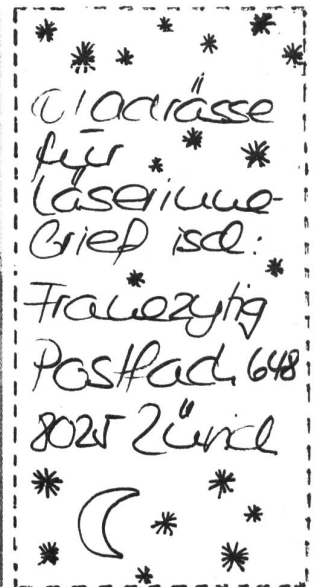 d'Adrässe
für
Läserinne-
Brief isch:
Frauezytig
Postfach 648
8025 Zürich